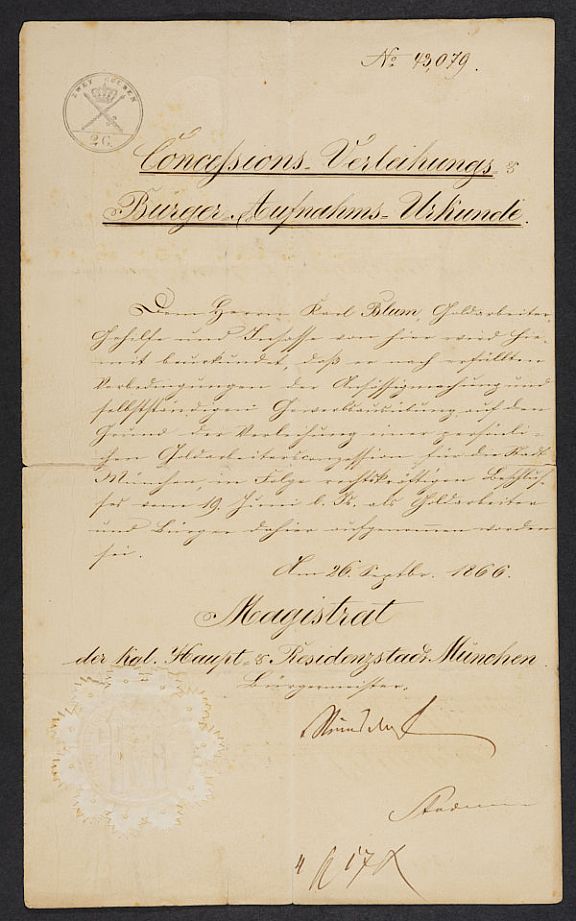 No 43,079.
ZWEY GULDEN
2 G.
Concessions-Verleihungs- &
Bürger-Aufnahms-Urkunde.
Dem Herrn Karl Blum, Goldarbeiter-
Gehilfe und Insasse von hier wird hie-
mit beurkundet, daß er nach erfüllten
Vorbedingungen der Ansässigmachung und
selbstständigen Gewerbsausübung auf den
Grund der Verleihung einer persönli-
chen Goldarbeitersconzession für die Stadt
München, in Folge rechtskräftigen Beschlus-
ses vom 19. Juni l. Js. als Goldarbeiter
und Bürger dahier aufgenommen worden
sei.
Am 26. Septbr. 1866.
Magistrat
der kgl. Haupt- & Residenzstadt München.
Bürgermeister.
4 17